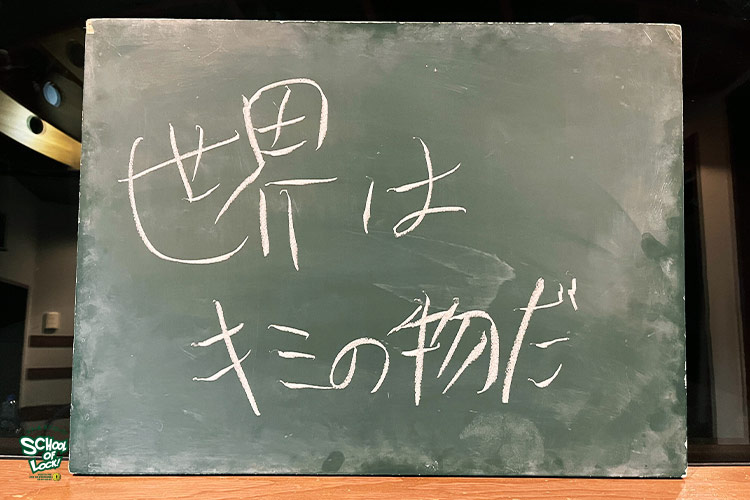 世界は
キミの物だ
SCHOOL
OF
LOCK!